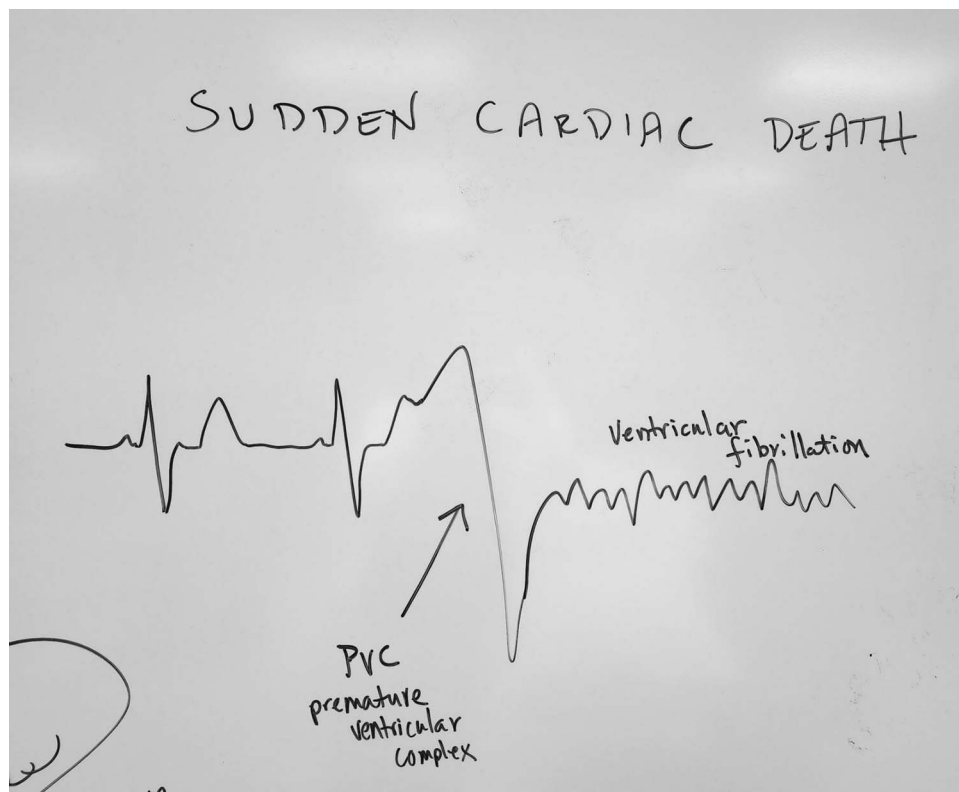 SUDDEN CARDIAC DEATH
ventricular
fibrillation
PVC
premature
ventricular
complex